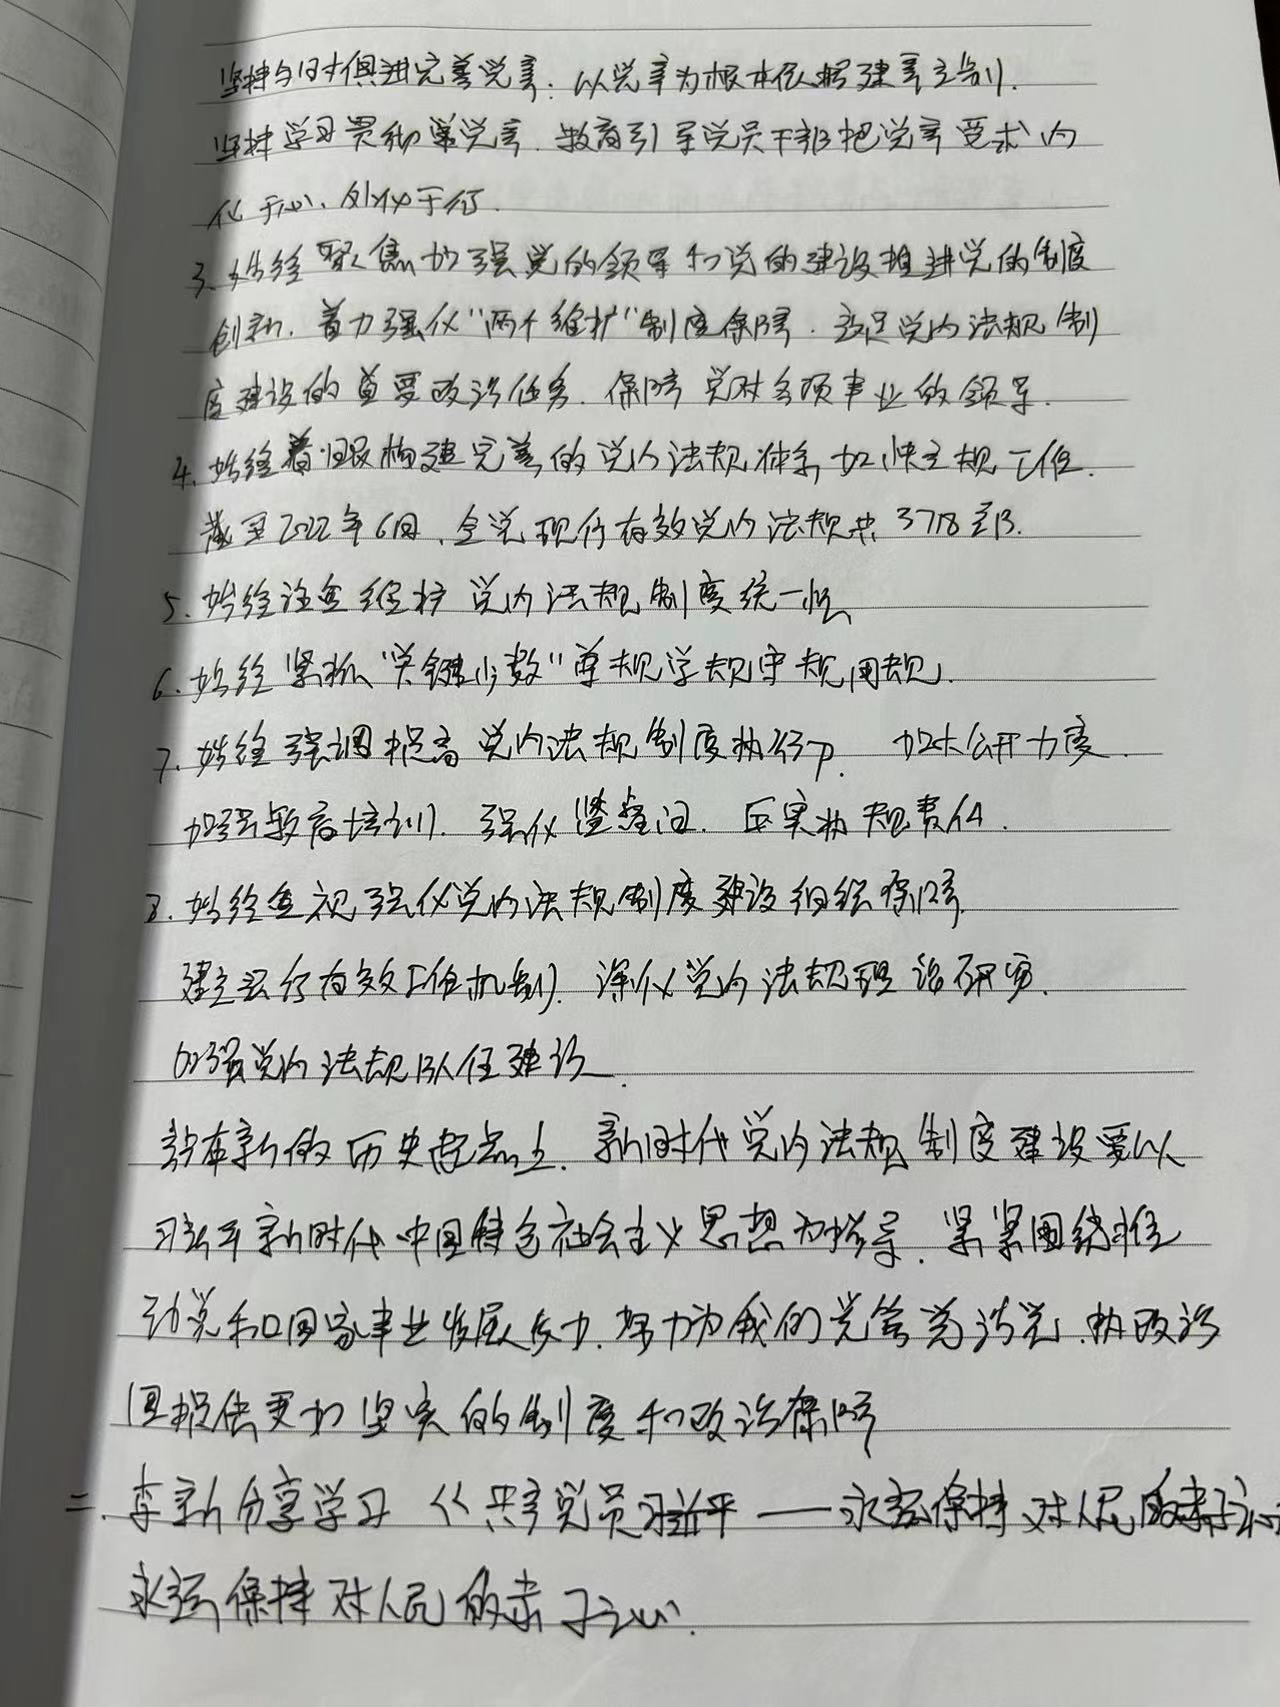 坚持与时俱进完善党章;以党章为根本依据建章立制.
坚持学习贯彻党章.教育引导党员干部把党章要求内
化于心、外化于行.
3.始终聚焦加强党的领导和党的建设推进党的制度
创新.着力强化"两个维护"制度保障.这是党内法规制
度建设的首要政治任务.保障党对各项事业的领导.
4.始终着眼构建完善的党内法规体系加快立规工作.
截至2022年6月、全党现行有效党内法规共3718部.
5.始终注重维护党内法规制度统一性
6.始终紧抓"关键少数"尊规学规守规用规.
7.始终强调提高党内法规制度执行力.加大公开力度.
加强教育培训.强化监督问.压实执规责任.
8.始终重视强化党内法规制度建设组织保障.
建立运行有效工作机制.深化党内法规理论研究.
加强党内法规队伍建设.
站在新的历史起点上.新时代党内法规制度建设要以
习近平新时代中国特色社会主义思想为指导.紧紧围绕推
动党和国家事业发展发力.努力为我们党管党治党、执政治
国提供更加坚实的制度和政治保障
二.李新分享学习《共产党员习近平——永远保持对人民的赤子之心
永远保持对人民的赤子之心.